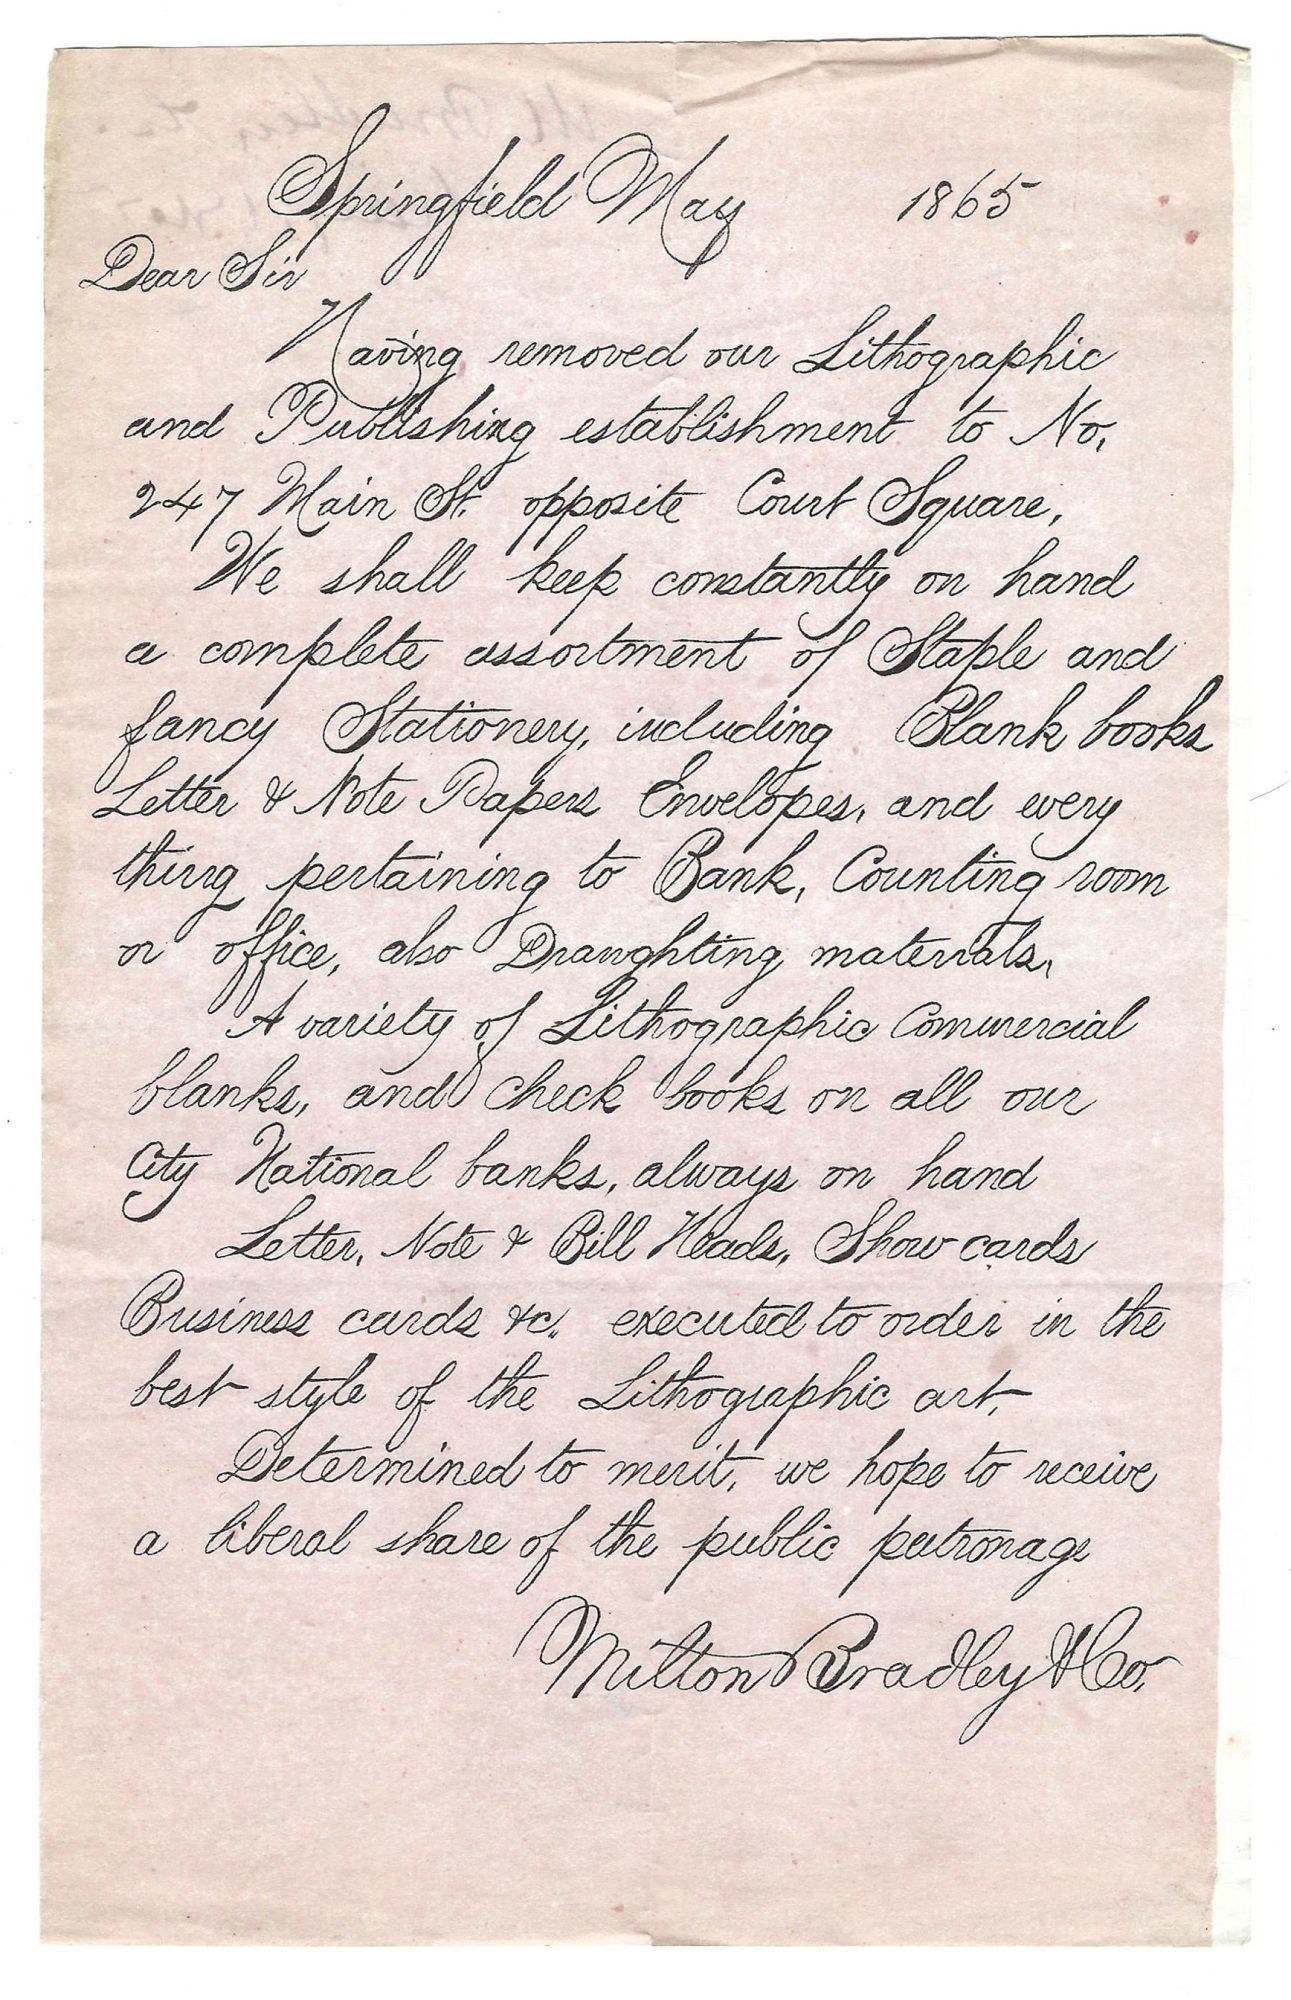 Springfield May 1865
Dear Sir
Having removed our Lithographic
and Publishing establishment to No.
247 Main St. opposite Court Square,
We shall keep constantly on hand
a complete assortment of Staple and
fancy Stationery, including Blank books
Letter & Note Papers Envelopes, and every
thing pertaining to Bank, Counting room
or office, also Draughting materials,
A variety of Lithographic Commercial
blanks, and check books on all our
City National banks, always on hand
Letter, Note & Bill Heads, Show cards
Business cards &c. executed to order in the
best style of the Lithographic art,
Determined to merit, we hope to receive
a liberal share of the public patronage
Milton Bradley & Co.